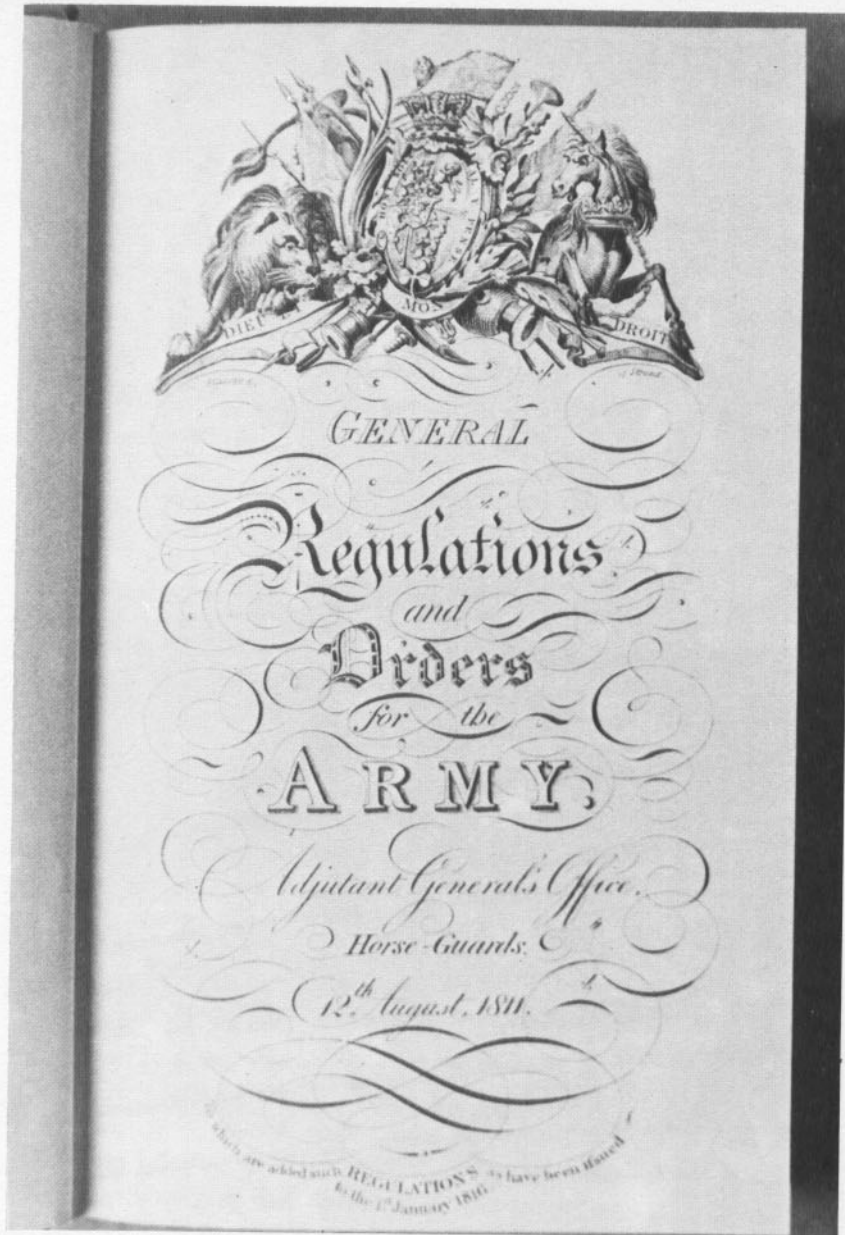 MAL Y PENSE
DIEU
MON
DROIT
GENERAL
Regulations
and
Orders
for the
ARMY;
Adjutant General's Office,
Horse-Guards.
12.th August, 1811.
To which are added such REGULATIONS as have been iſsued
to the 1.st January 1816